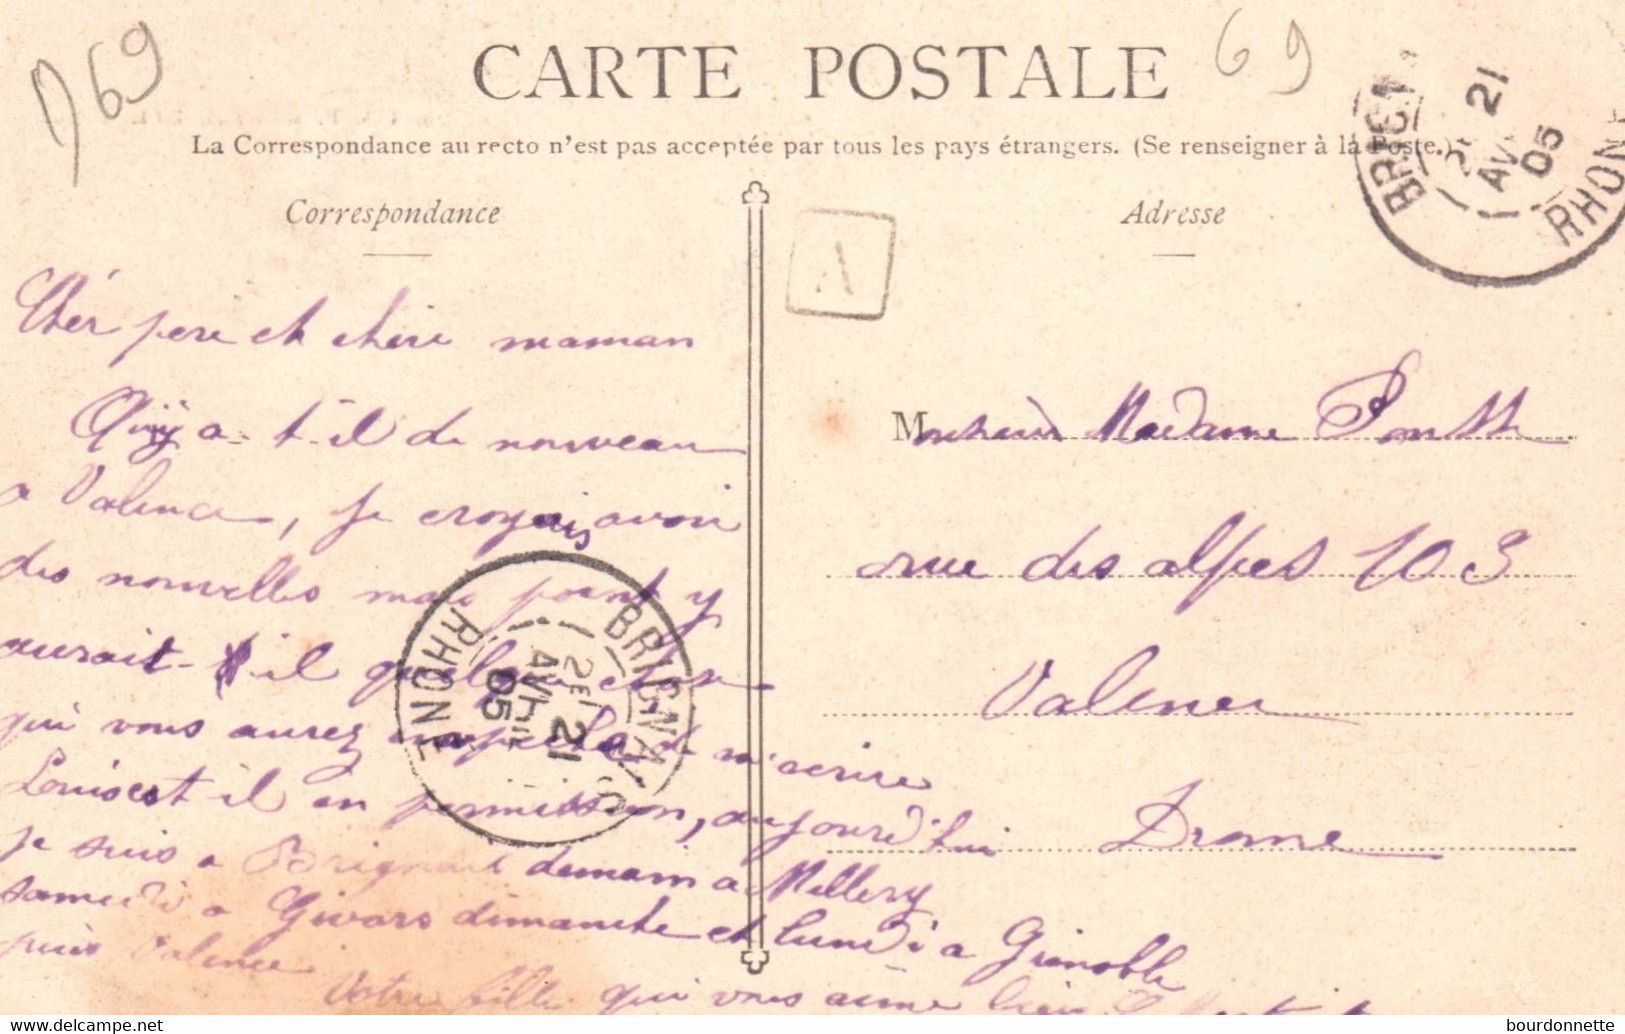 D69
69
CARTE POSTALE
La Correspondance au recto n'est pas acceptée par tous les pays étrangers. (Se renseigner à la Poste.)
Correspondance
Adresse
BRIGNAIS
21
AVRIL
05
RHONE
A
Chér pere et chère maman
Qu'y a-t-il de nouveau
a Valence, je croyais avoir
des nouvelles mais point y
aurait-il quelque chose
qui vous aurez empeché de m'écrire
Louis est il en permission, aujourd'hui
je suis a Brignais demain a Millery
samedi a Givors dimanche et lundi a Grenoble
puis Valence
Votre fille qui vous aime bien
BRIGNAIS
21
AVRIL
05
RHONE
Monsieur Madame
rue des alpes 103
Valence
Drome
www.delcampe.net
bourdonnette